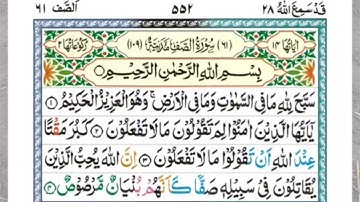 قد سمع الله ٢٨ ٥٥٢ الصف ٦١
اٰیاتها ١٤ (٦١) سُوْرَةُ الصَّفِّ مَدَنِیَّةٌ (١٠٩) رکوعاتها ٢
بِسْمِ اللّٰهِ الرَّحْمٰنِ الرَّحِیْمِ
سَبَّحَ لِلّٰهِ مَا فِی السَّمٰوٰتِ وَمَا فِی الْاَرْضِ ۚ وَهُوَ الْعَزِیْزُ الْحَكِیْمُ ۝١
یٰۤاَیُّهَا الَّذِیْنَ اٰمَنُوْا لِمَ تَقُوْلُوْنَ مَا لَا تَفْعَلُوْنَ ۝٢ كَبُرَ مَقْتًا
عِنْدَ اللّٰهِ اَنْ تَقُوْلُوْا مَا لَا تَفْعَلُوْنَ ۝٣ اِنَّ اللّٰهَ یُحِبُّ الَّذِیْنَ
یُقَاتِلُوْنَ فِیْ سَبِیْلِهٖ صَفًّا كَاَنَّهُمْ بُنْیَانٌ مَّرْصُوْصٌ ۝٤